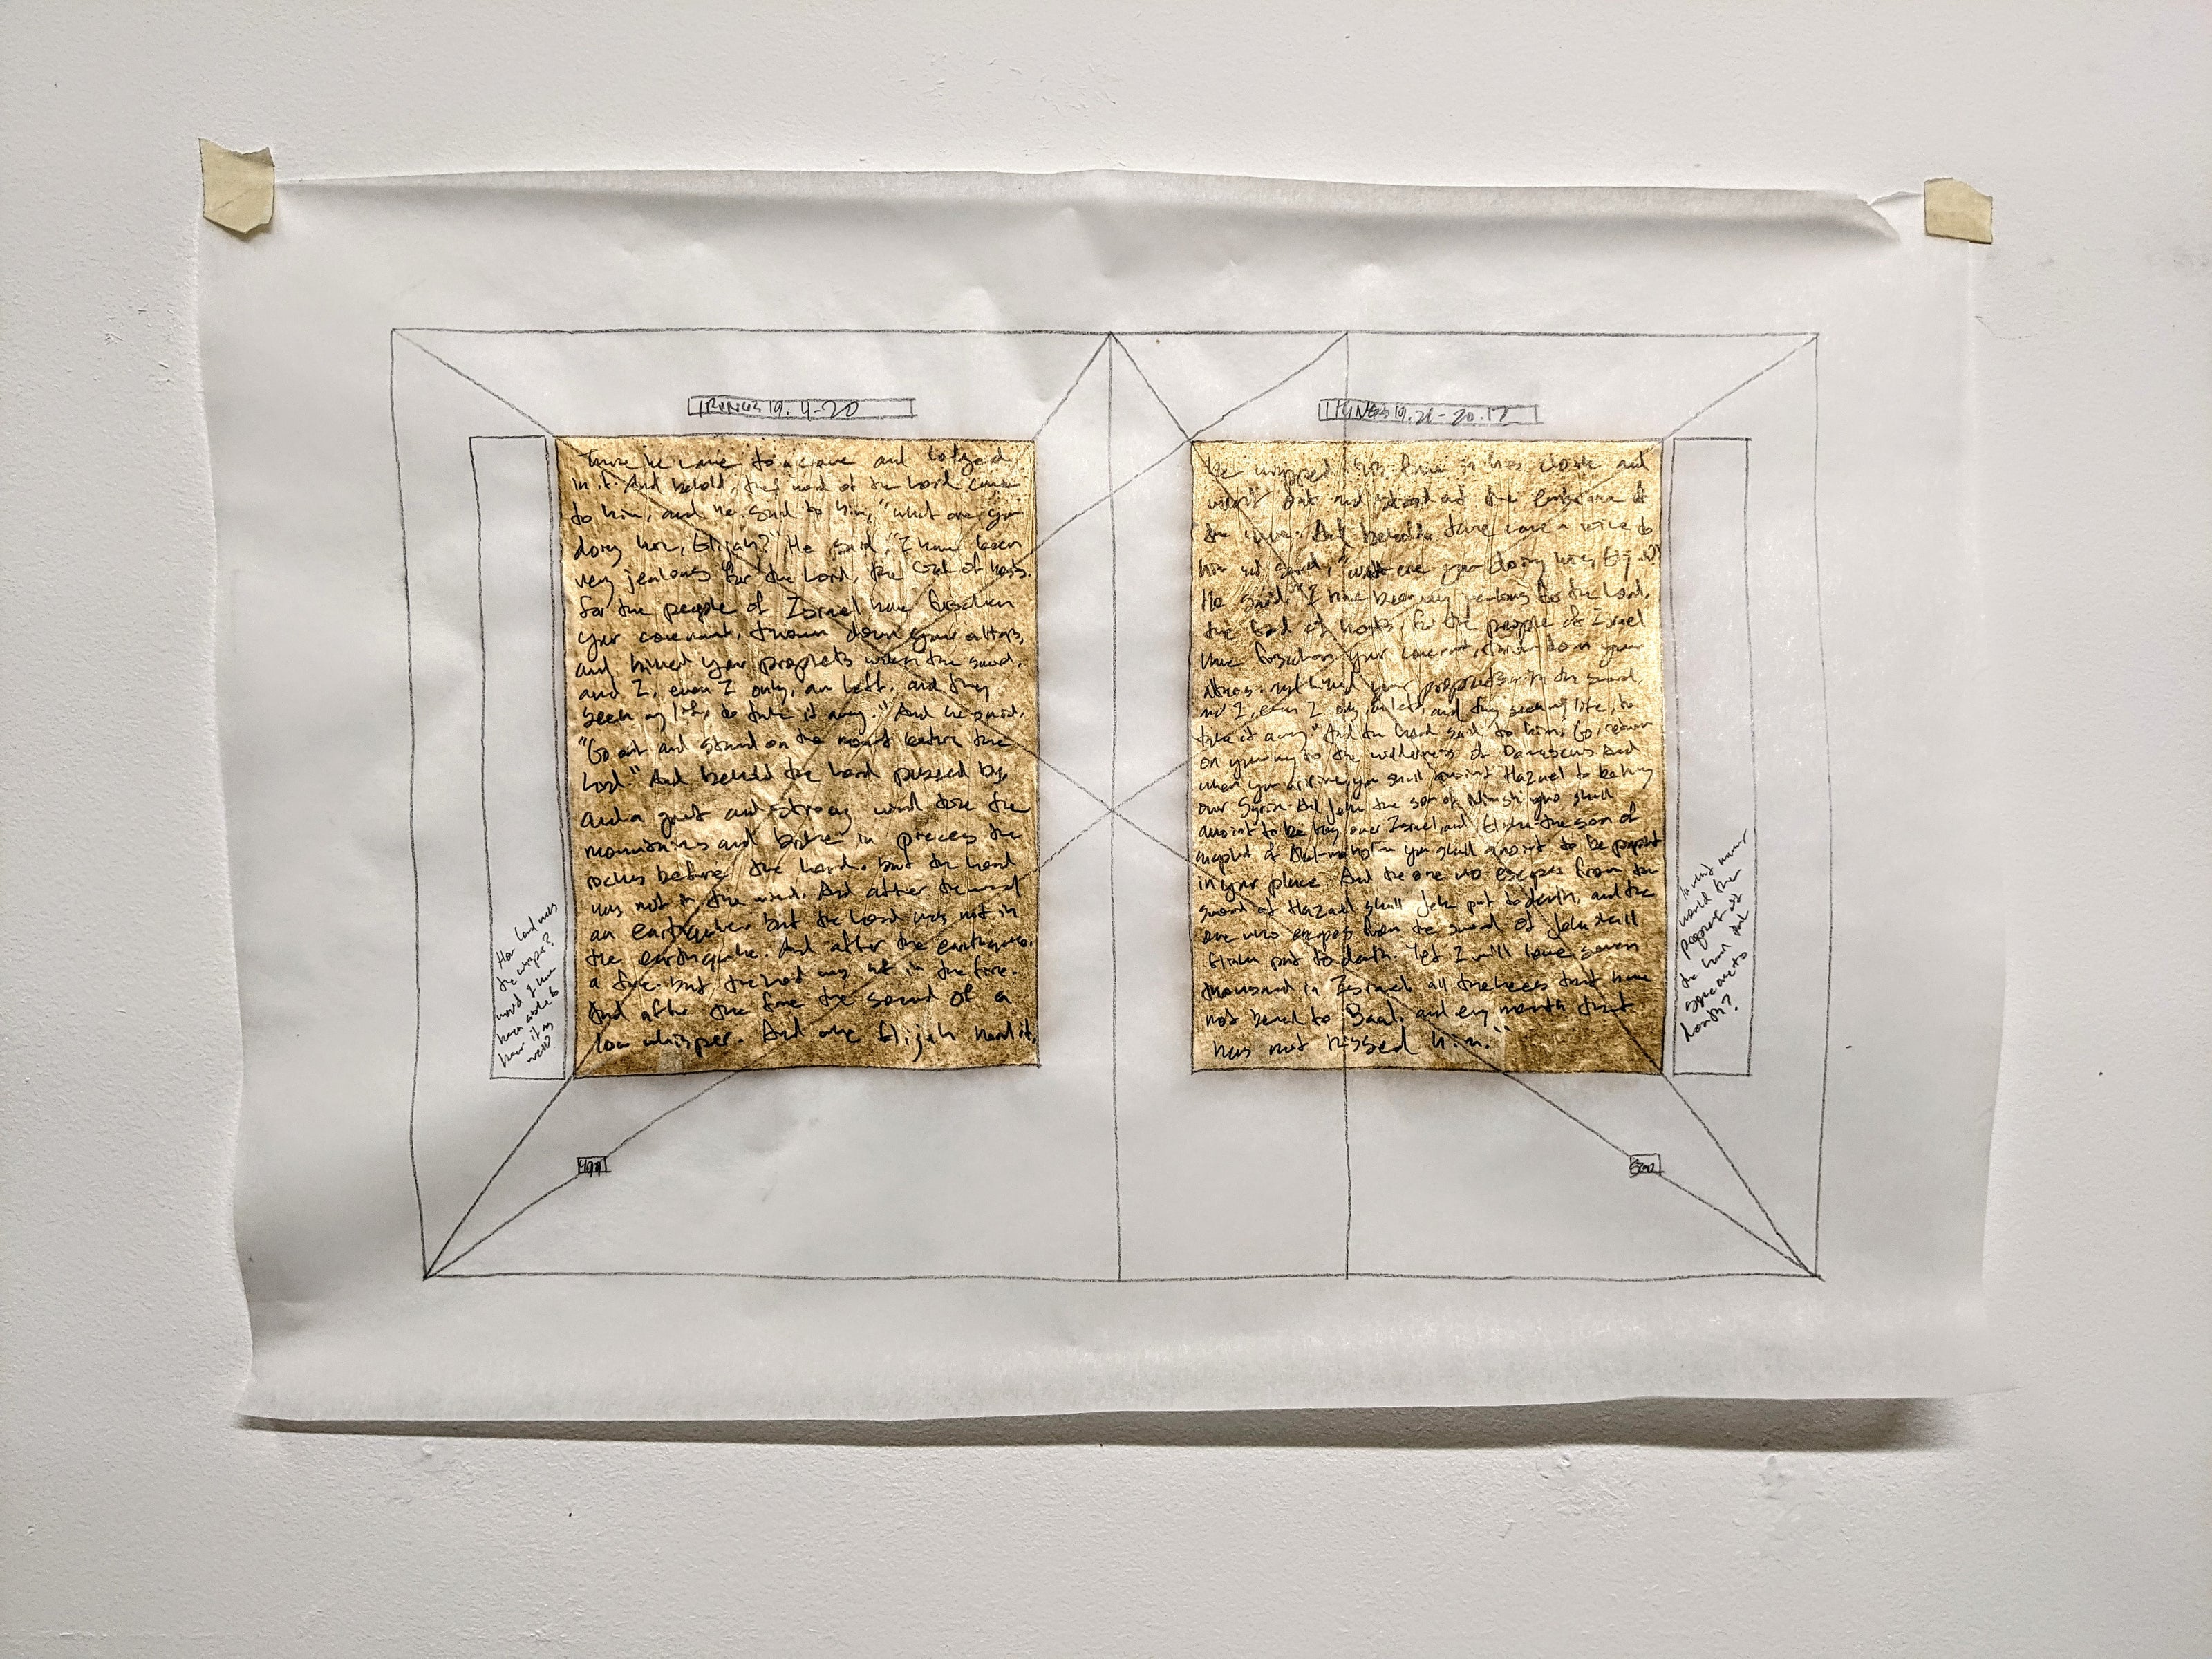 1 KINGS 19. 4-20
There he came to a cave and lodged
in it. And behold, the word of the Lord came
to him, and he said to him, "what are you
doing here, Elijah?" He said, "I have been
very jealous for the Lord, the God of hosts.
for the people of Israel have forsaken
your covenant, thrown down your altars,
and killed your prophets with the sword,
and I, even I only, am left, and they
seek my life, to take it away." And he said,
"Go out and stand on the mount before the
Lord." And behold the Lord passed by,
and a great and strong wind tore the
mountains and broke in pieces the
rocks before the Lord. but the Lord
was not in the wind. And after the wind
an earthquake. but the Lord was not in
the earthquake. And after the earthquake.
a fire. but the Lord was not in the fire.
And after the fire the sound of a
low whisper. And when Elijah heard it,
How loud was
the whisper?
would I have
been able to
hear it as
well?
499
1 KINGS 19.21-20.12
he wrapped his face in his cloak and
went out and stood at the entrance of
the cave. And behold, there came a voice to
him and said, "what are you doing here, Elijah?"
He said, "I have been very jealous for the Lord,
the God of hosts, for the people of Israel
have forsaken your covenant, thrown down your
altars, and killed your prophets with the sword,
and I, even I only, am left, and they seek my life, to
take it away." And the Lord said to him. Go, return
on your way to the wilderness of Damascus And
when you arrive, you shall anoint Hazael to be king
over Syria. And Jehu the son of Nimshi you shall
anoint to be king over Israel, and Elisha the son of
of Abel-meholah you shall anoint to be prophet
in your place. And the one who escapes from the
sword of Hazael shall Jehu put to death, and the
one who escapes from the sword of Jehu shall
Elisha put to death. Yet I will leave seven
thousand in Israel, all the knees that have
not bowed to Baal, and every mouth that
has not kissed him."
would the
of
the
someone to
death?
500